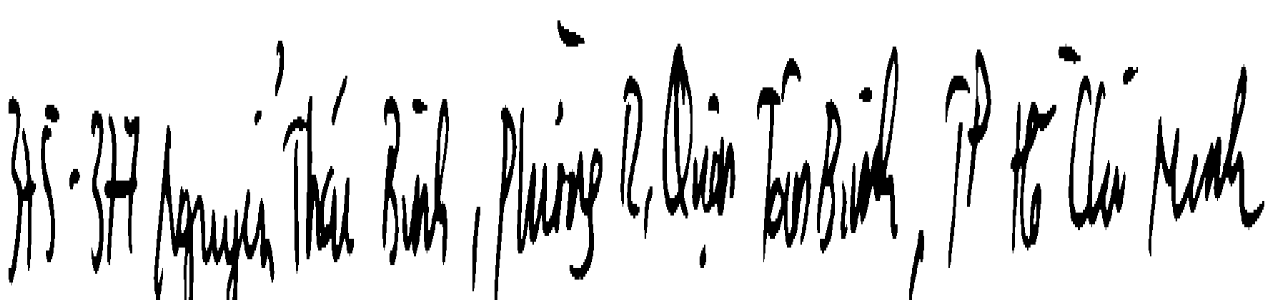 375-377 Nguyễn Thái Bình, Phường 12, Quận Tân Bình, TP Hồ Chí Minh